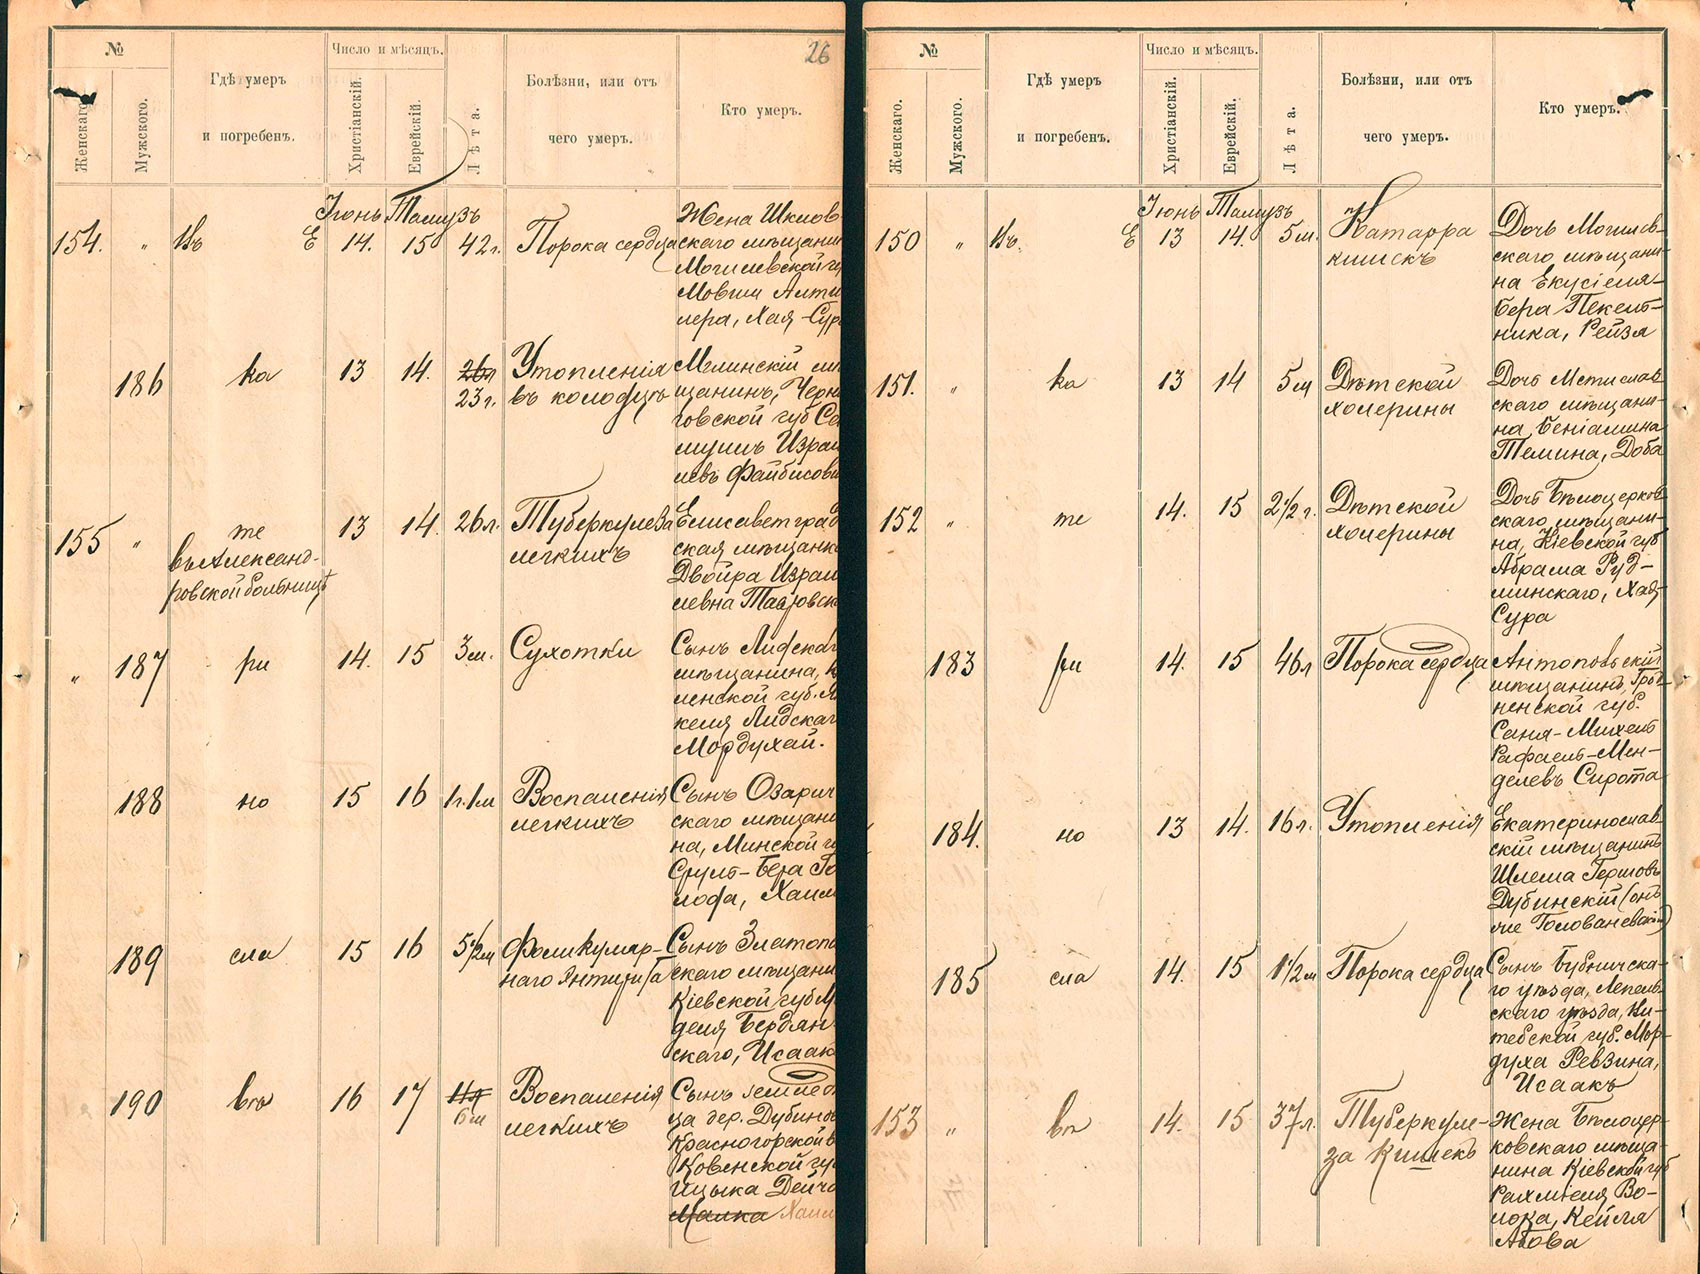 26
№
Женскаго.
Мужскаго.
Гдѣ умеръ
и погребенъ.
Число и мѣсяцъ.
Христіанскій.
Еврейскій.
Лѣта.
Болѣзни, или отъ
чего умеръ.
Кто умеръ.
Іюнь Тамузъ
154. " Въ Е 14. 15 42 г. Порока сердца
Жена Шклов-
скаго мѣщани
Могилевской гу
Мовши Алти
лера, Хая-Сур
186 ка 13 14. 26л 23 г. Утопленія
въ колодцѣ
Мглинскій мѣ
щанинъ, Черни
говской губ Са
муилъ Израи
левъ Файбисови
155 " те
въ Александ-
ровской больницѣ
13 14. 26 л. Туберкулеза
легкихъ
Елисаветград
ская мѣщанк
Двойра Израи
левна Тавровск
" 187 ри 14. 15 3 м. Сухотки
Сынъ Лидскаг
мѣщанина, Ви
ленской губ. Я
келя Лидскаг
Мордухай.
188 но 15 16 1 г. 1 м Воспаленія
легкихъ
Сынъ Озарич
скаго мѣщани
на, Минской гу
Сруль-Бера Го
лофа, Хаим
189 сла 15 16 5 1/2 м Фоликуляр-
наго Энтерита
Сынъ Златопо
скаго мѣщани
Кіевской губ М
деля Бердян
скаго, Исаак
190 вѣ 16 17 11 6 м Воспаленія
легкихъ
Сынъ землед
ца дер. Дубинов
Красногорской в
Ковенской гу
Ицыка Дейч
Малка Хаим
№
Женскаго.
Мужскаго.
Гдѣ умеръ
и погребенъ.
Число и мѣсяцъ.
Христіанскій.
Еврейскій.
Лѣта.
Болѣзни, или отъ
чего умеръ.
Кто умеръ.
Іюнь Тамузъ
150 " Въ. Е 13 14. 5 м. Катарра
кишекъ
Дочь Могилев-
скаго мѣщани-
на Екусіеля-
Бера Пекель-
ника, Рейзя
151. " ка 13 14 5 м Дѣтской
холерины
Дочь Мстислав
скаго мѣщани-
на, Беніамина
Темина, Доба
152 " те 14. 15 2 1/2 г. Дѣтской
холерины
Дочь Бѣлоцерков
скаго мѣщани-
на, Кіевской губ
Абрама Руд-
минскаго, Хая-
Сура
183 ри 14. 15 46 л Порока сердца
Антопольскій
мѣщанинъ, Грод
ненской губ.
Саня-Михель
Рафаель-Мен-
делевъ Сирота
184. но 13 14. 16 л. Утопленія
Екатеринослав
скій мѣщанинъ
Шлема Гершовъ
Дубинскій (онъ
же Голованевскій)
185 сла 14. 15 1 1/2 м Порока сердца
Сынъ Бубничска-
го уѣзда, Лепель-
скаго уѣзда, Ви-
тебской губ. Мор-
духа Ревзина,
Исаакъ
153 " вѣ 14. 15 37 л. Туберкуле-
за Кишекъ
Жена Бѣлоцер-
ковскаго мѣща-
нина Кіевской губ
Рахміеля Во-
лока, Кейля
Абова